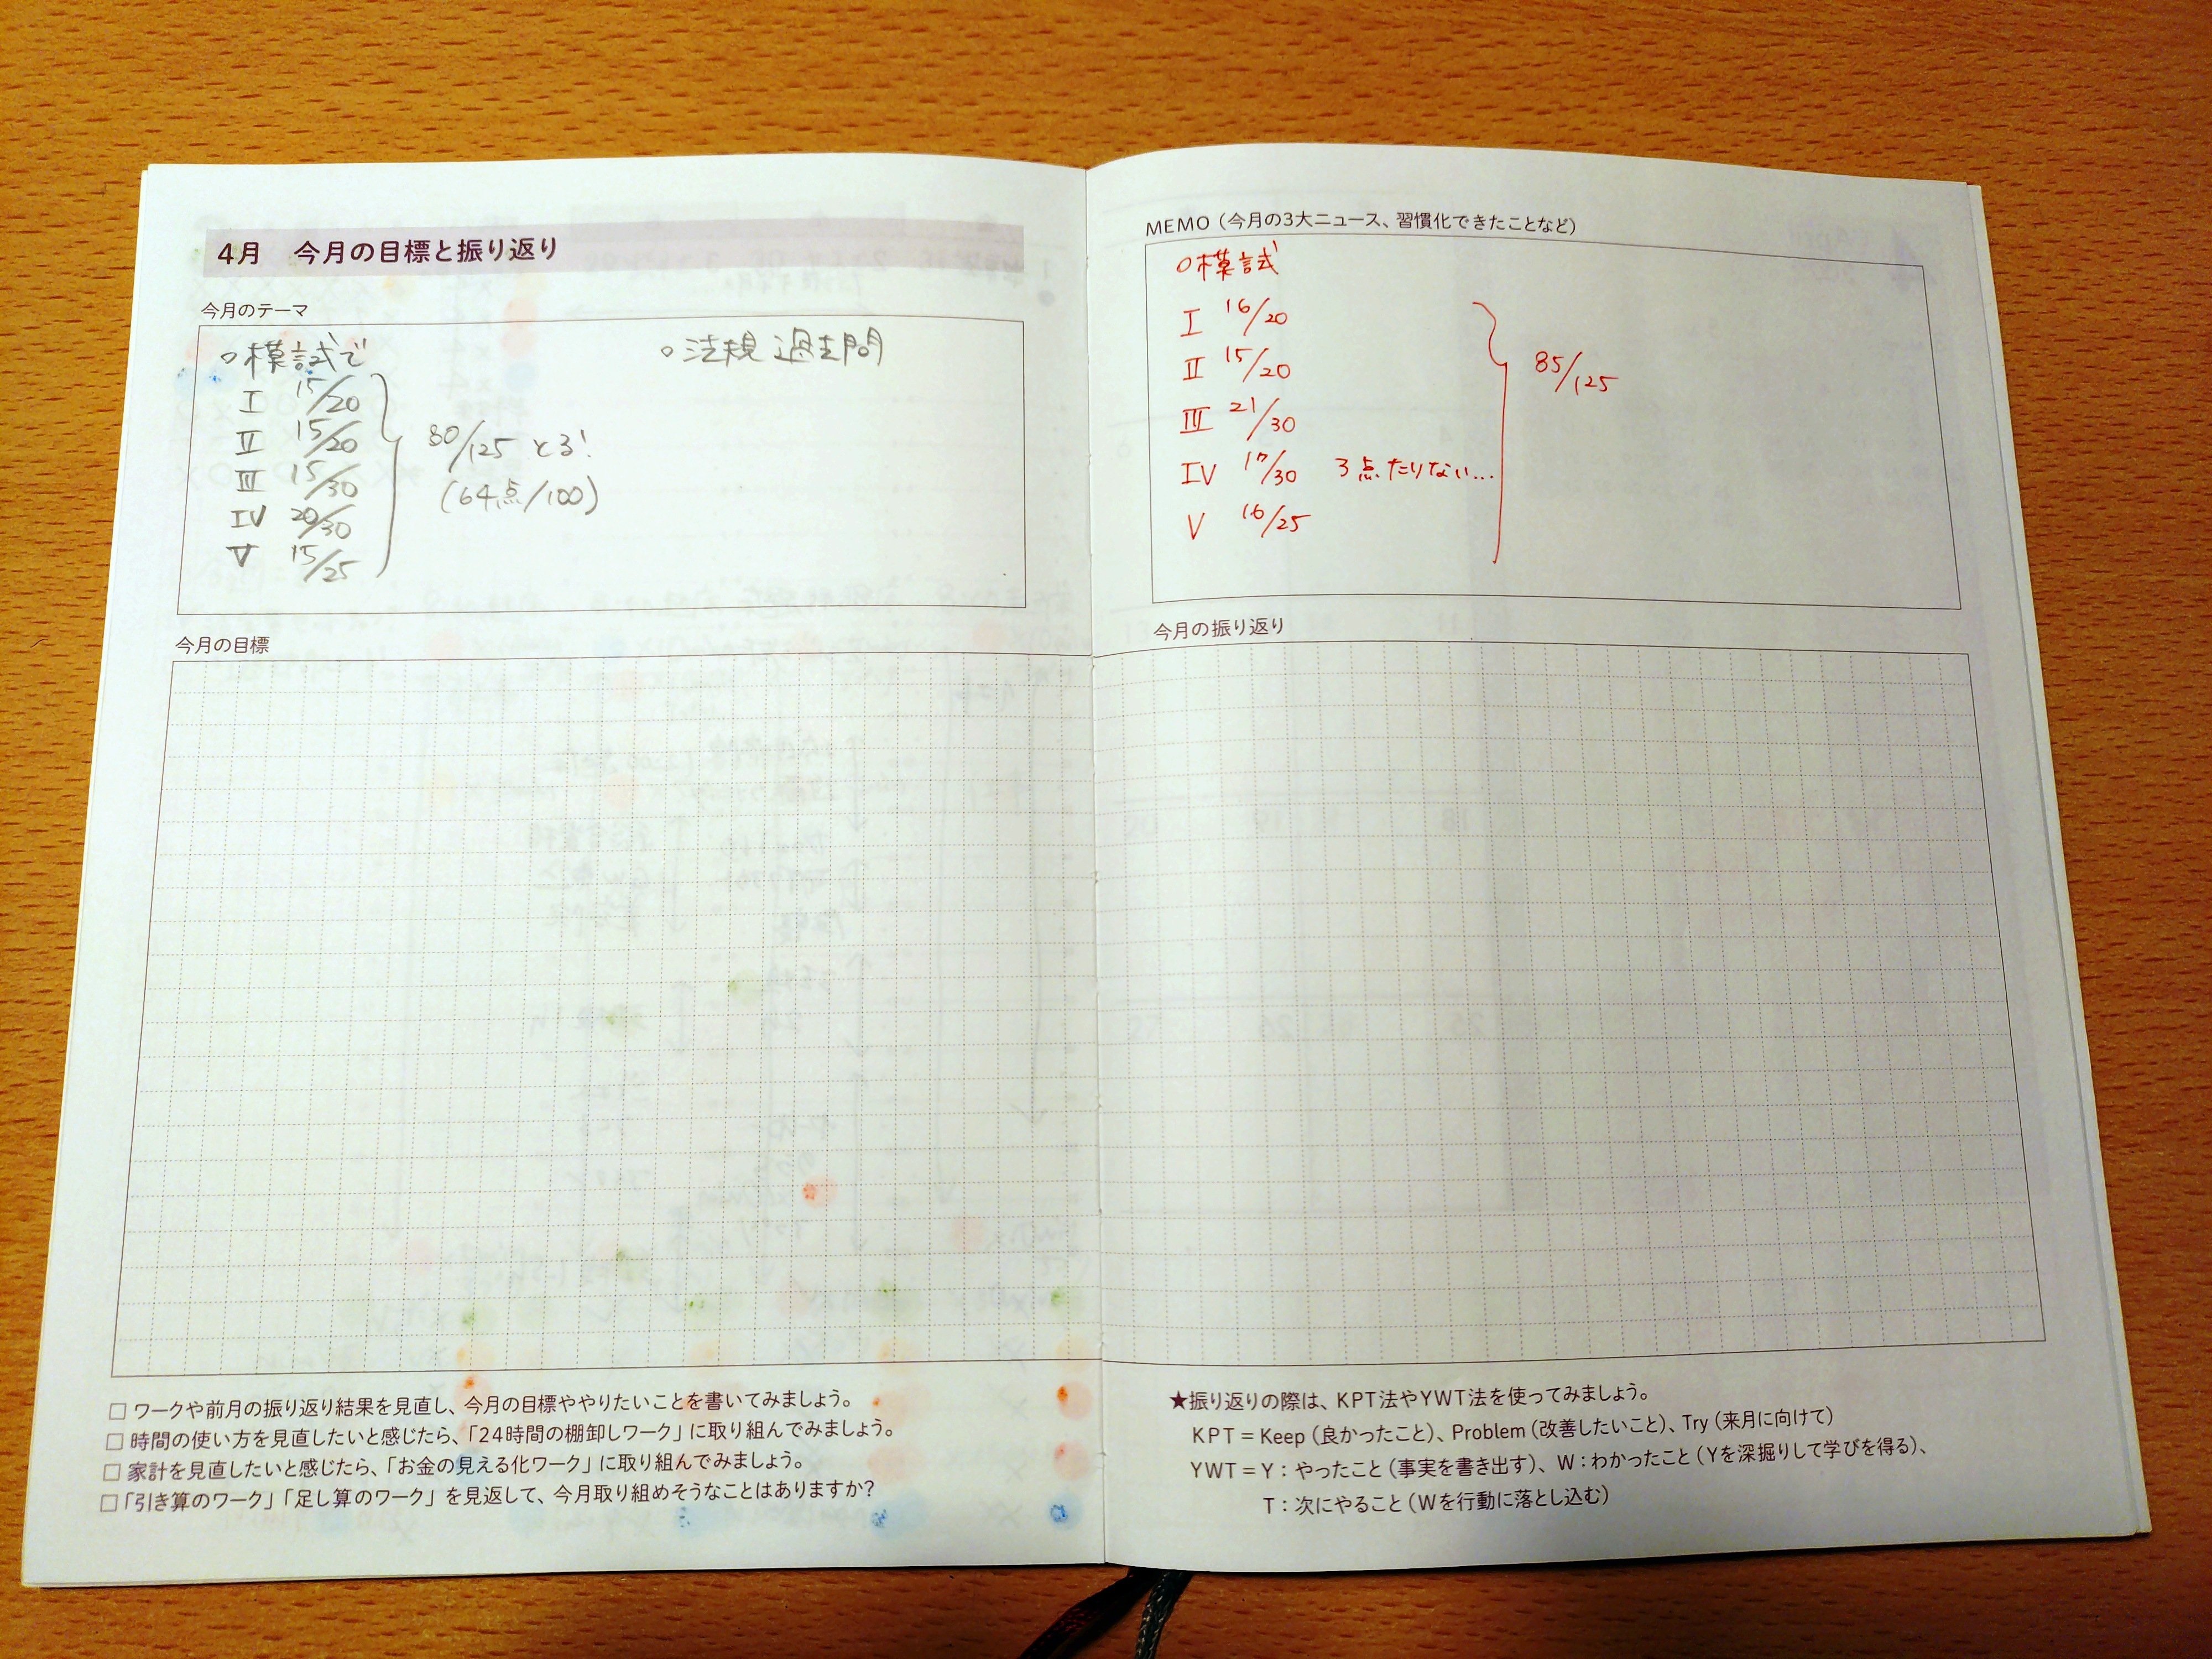 4月 今月の目標と振り返り
今月のテーマ
○模試で
I 15/20
II 15/20
III 15/30
IV 20/30
V 15/25
80/125 とる!
(64点/100)
○法規 過去問
今月の目標
□ ワークや前月の振り返り結果を見直し、今月の目標ややりたいことを書いてみましょう。
□ 時間の使い方を見直したいと感じたら、「24時間の棚卸しワーク」に取り組んでみましょう。
□ 家計を見直したいと感じたら、「お金の見える化ワーク」に取り組んでみましょう。
□「引き算のワーク」「足し算のワーク」を見返して、今月取り組めそうなことはありますか?
MEMO(今月の3大ニュース、習慣化できたことなど)
○模試
I 16/20
II 15/20
III 21/30
IV 17/30 3点たりない...
V 16/25
85/125
今月の振り返り
★振り返りの際は、KPT法やYWT法を使ってみましょう。
KPT=Keep(良かったこと)、Problem(改善したいこと)、Try(来月に向けて)
YWT=Y:やったこと(事実を書き出す)、W:わかったこと(Yを深掘りして学びを得る)、
T:次にやること(Wを行動に落とし込む)